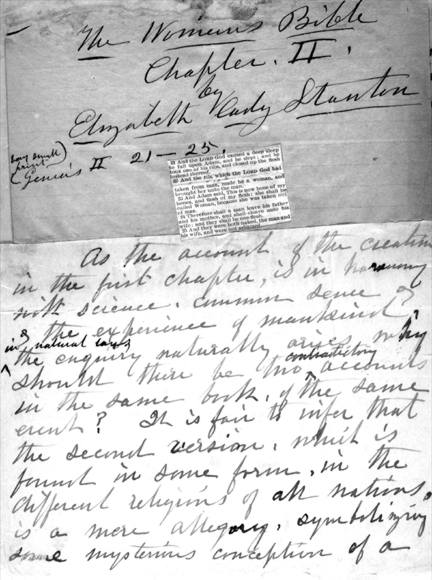 The Woman's Bible
Chapter. II.
by
Elizabeth Cady Stanton
(Genesis II 21–25.
21 And the LORD God caused a deep sleep
to fall upon Adam, and he slept; and he
took one of his ribs, and closed up the flesh
instead thereof.
22 And the rib, which the LORD God had
taken from man, made he a woman, and
brought her unto the man.
23 And Adam said, This is now bone of my
bones, and flesh of my flesh: she shall be
called Woman, because she was taken out
of man.
24 Therefore shall a man leave his father
and his mother, and shall cleave unto his
wife: and they shall be one flesh.
25 And they were both naked, the man and
his wife, and were not ashamed.
As the account of the creation
in the first chapter, is in harmony
with science, common sense, &
& the experience of mankind,
in natural laws
the enquiry naturally arises, why
contradictory
should there be two accounts
in the same book, of the same
event? It is fair to infer that
the second version, which is
found in some form, in the
different religions of all nations,
is a mere allegory, symbolizing
some mysterious conception of a